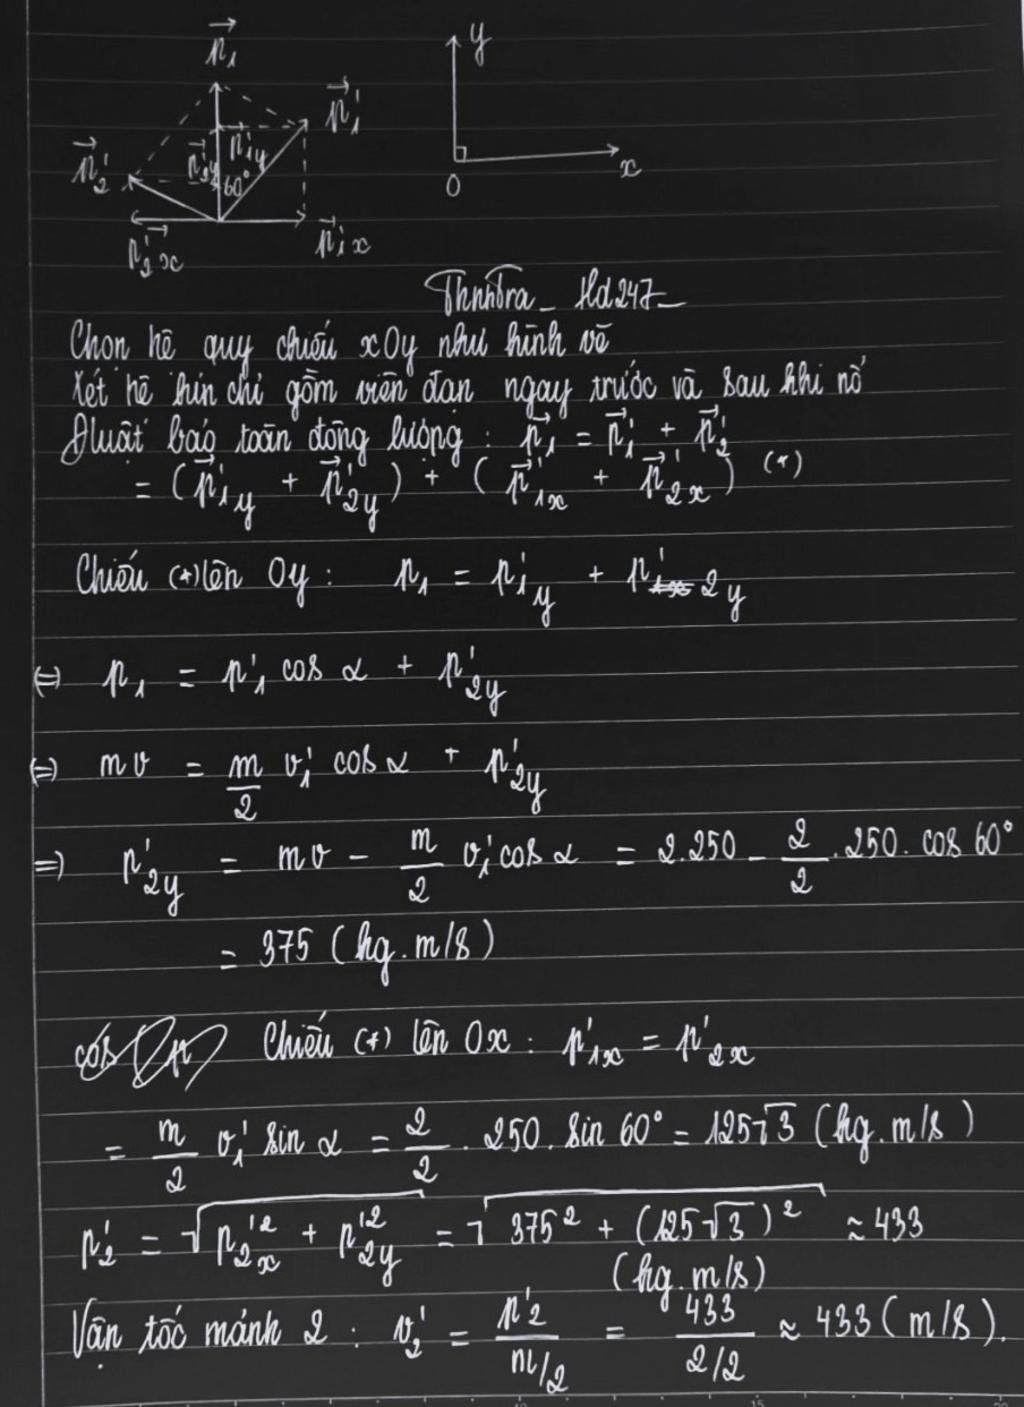 p⃗₁
y
p⃗'₁
p⃗'₂
p⃗'₂y
p⃗'₁y
60°
O
x
p⃗'₂x
p⃗'₁x
ThnhTra_ Hd247_
Chọn hệ quy chiếu xOy như hình vẽ
Xét hệ kín chỉ gồm viên đạn ngay trước và sau khi nổ
Đluật bảo toàn động lượng : p⃗₁ = p⃗'₁ + p⃗'₂
= (p⃗'₁y + p⃗'₂y) + (p⃗'₁x + p⃗'₂x) (*)
Chiếu (*) lên Oy : p₁ = p'₁y + p'₂y
⇔ p₁ = p'₁ cos α + p'₂y
⇔ mv = m/2 v'₁ cos α + p'₂y
⇒ p'₂y = mv - m/2 v'₁ cos α = 2.250 - 2/2 .250. cos 60°
= 375 (kg.m/s)
Chiếu (*) lên Ox : p'₁x = p'₂x
= m/2 v'₁ sin α = 2/2 . 250. sin 60° = 125√3 (kg.m/s)
p'₂ = √(p'₂x² + p'₂y²) = √(375² + (125√3)²) ≈ 433
(kg.m/s)
Vận tốc mảnh 2 : v'₂ = p'₂ / (m/2) = 433 / (2/2) ≈ 433 (m/s).